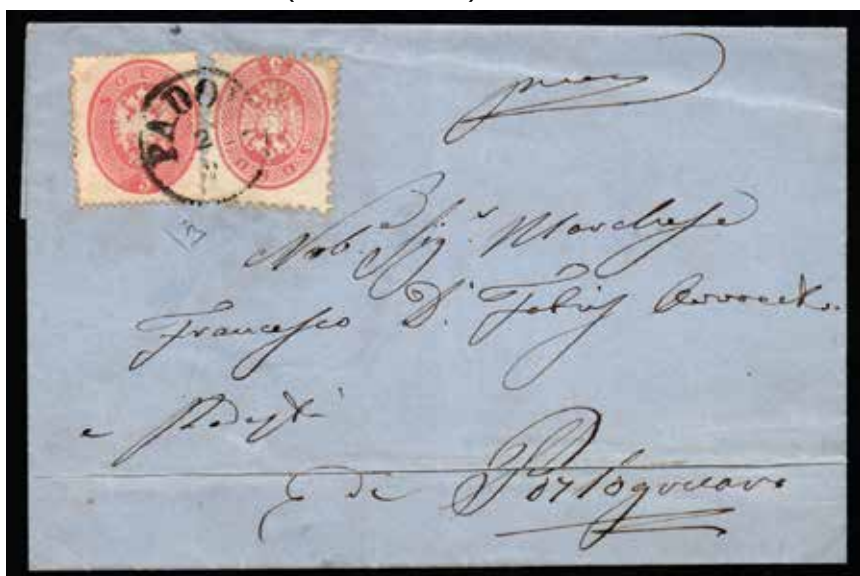 PADOVA
2
Nob. Sig.r Marchese
Francesco D.r Fabris Avvocato
e Podestà
di Portogruaro